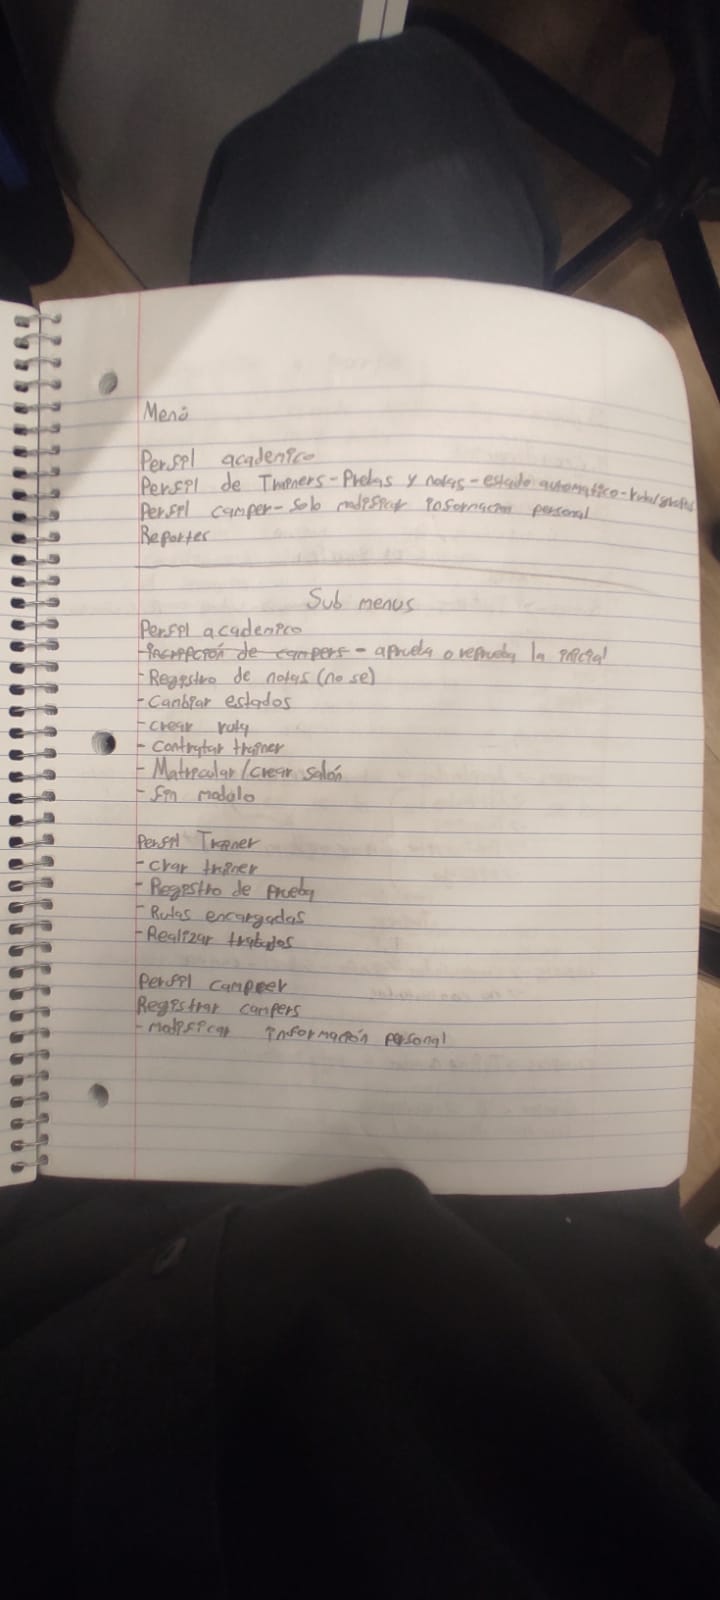 Menú
Perfil academico
Perfil de Trainers - Prebas y notas - estado automatico -
Perfil camper - Solo modificar informacion personal
Reportes
Sub menus
Perfil academico
- Incripción de campers - aprueba o reprueba la inicial
- Registro de notas (no se)
- Cambiar estados
- crear ruta
- contratar trainer
- Matricular / crear salón
- fin modulo
Perfil Trainer
- crar trainer
- Registro de prueba
- Rutas encargadas
- Realizar
Perfil campeer
Registrar campers
- modificar información personal